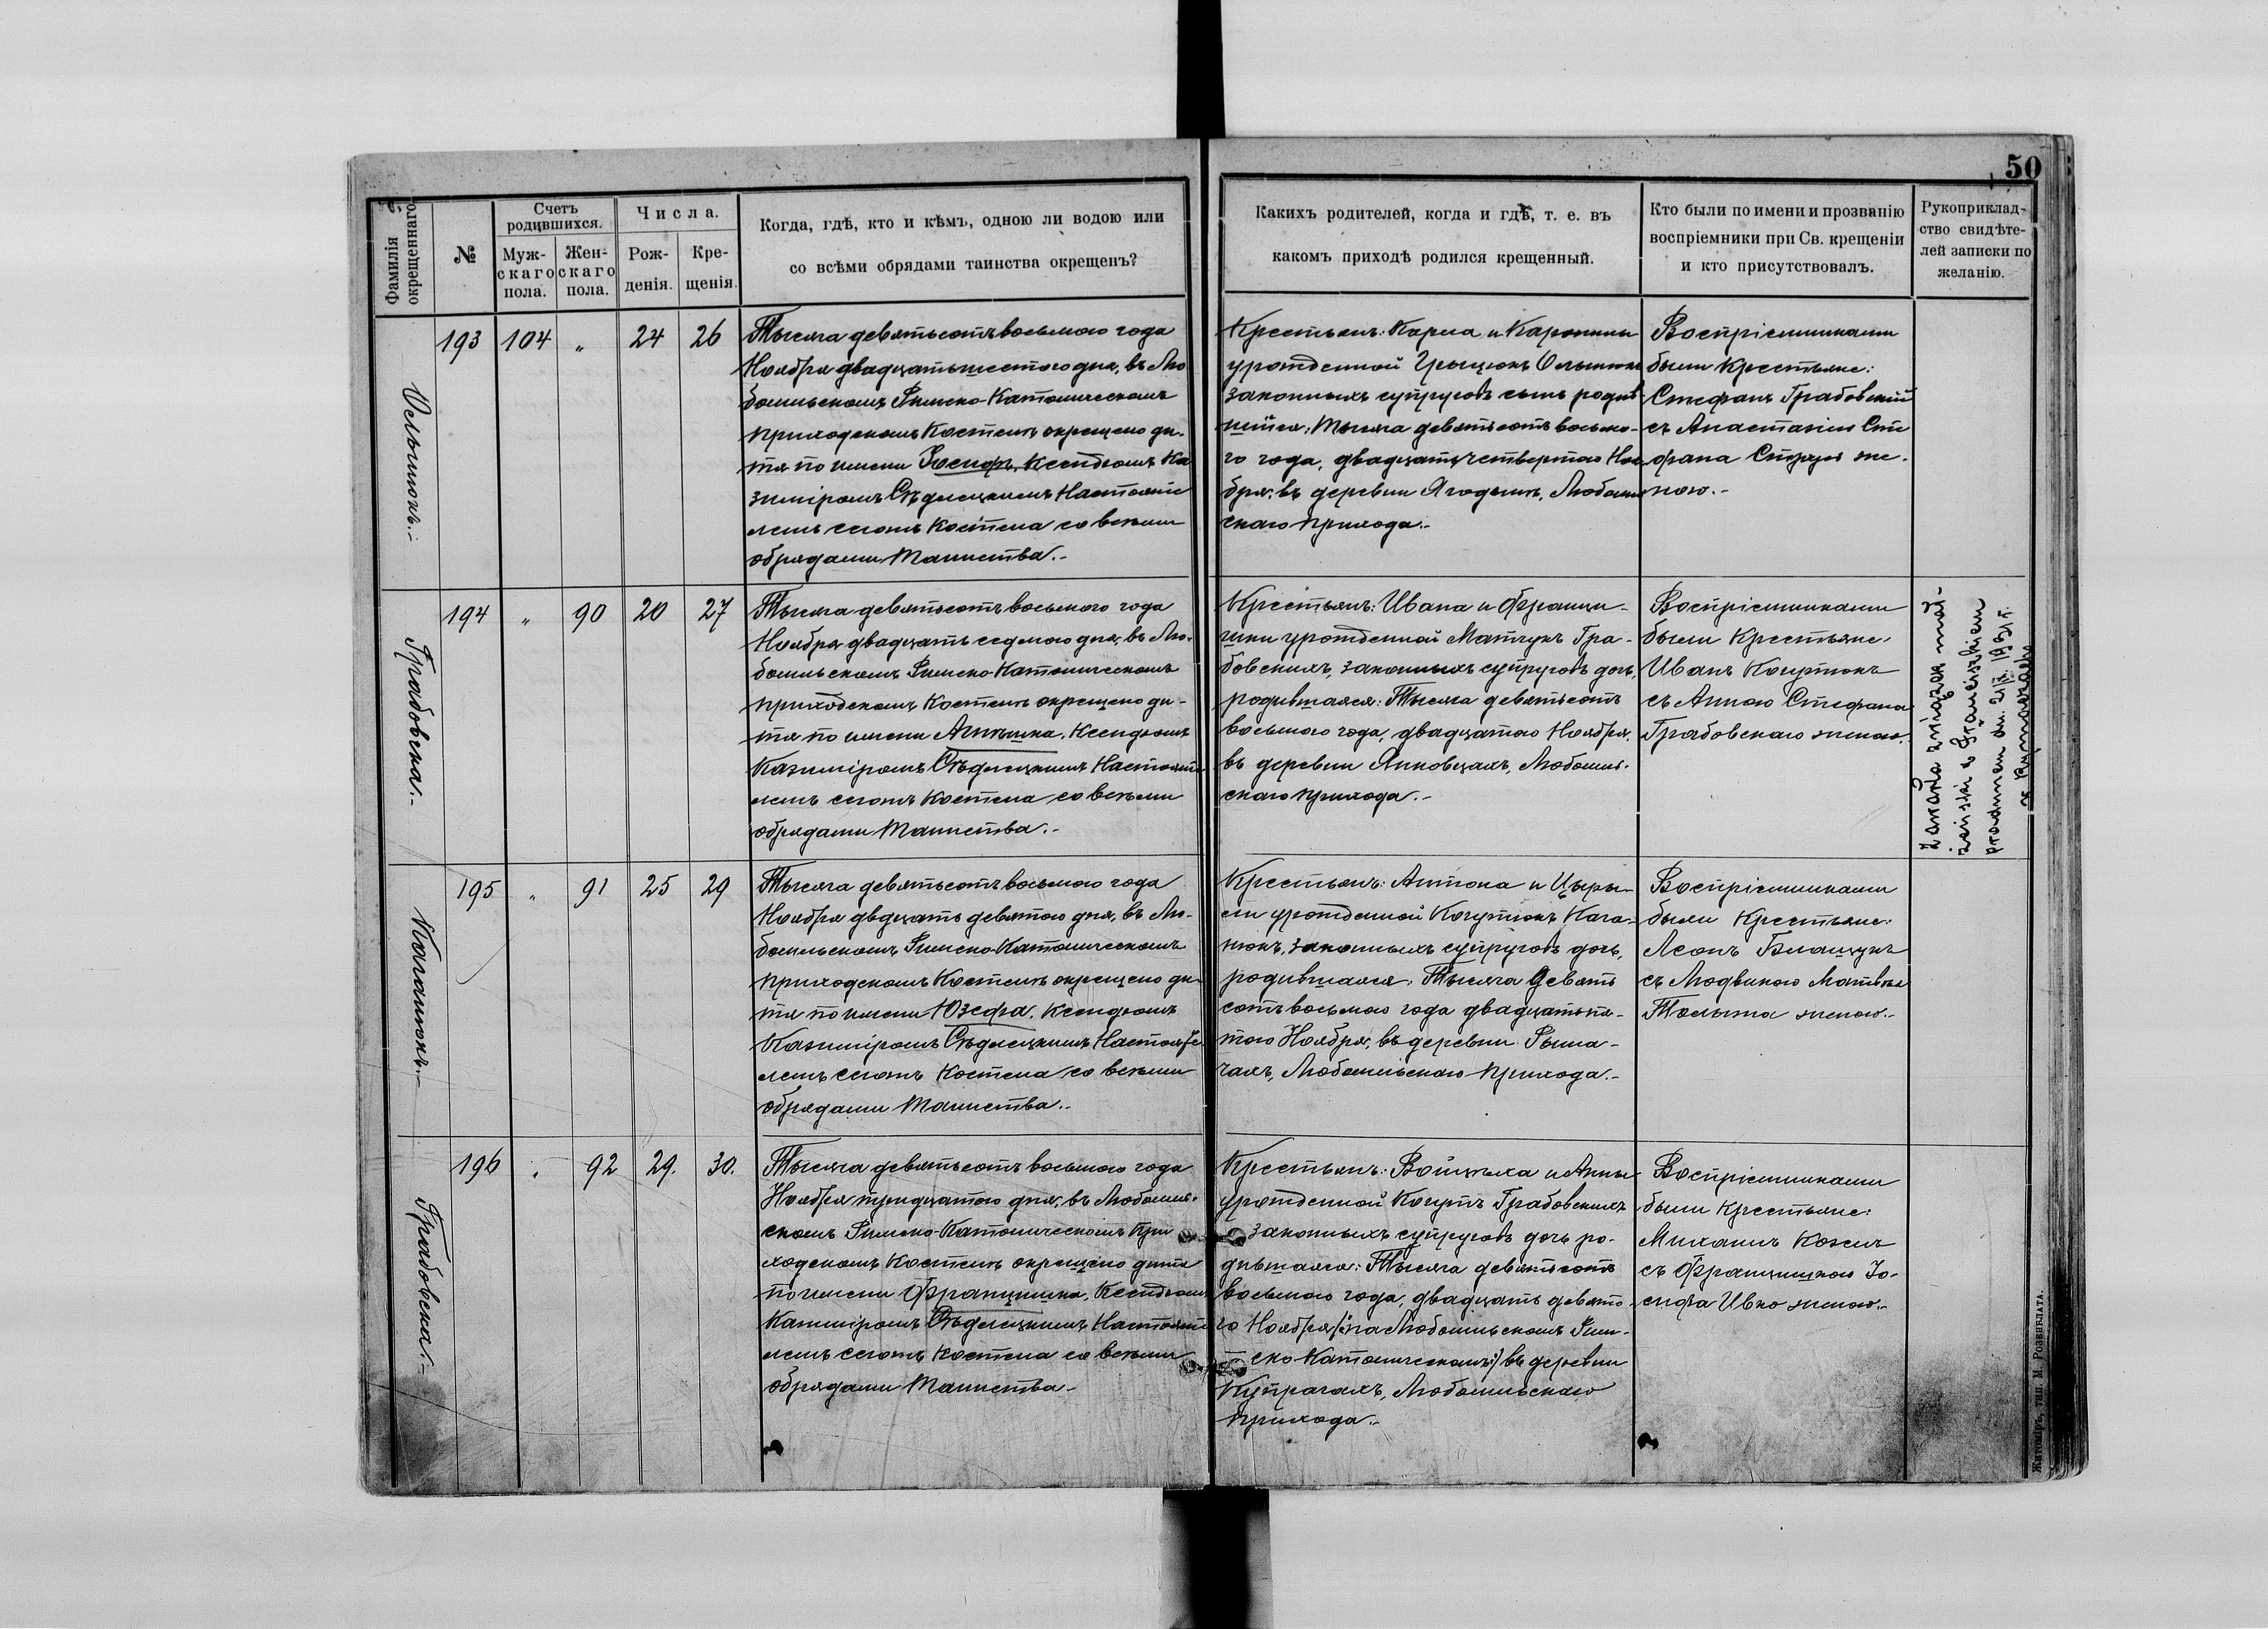 50
Фамилія окрещеннаго.
№
Счетъ родившихся.
Муж-
скаго
пола.
Жен-
скаго
пола.
Числа.
Рож-
денія.
Кре-
щенія.
Когда, гдѣ, кто и кѣмъ, одною ли водою или
со всѣми обрядами таинства окрещенъ?
Какихъ родителей, когда и гдѣ, т. е. въ
какомъ приходѣ родился крещенный.
Кто были по имени и прозванію
воспріемники при Св. крещеніи
и кто присутствовалъ.
Рукоприклад-
ство свидѣте-
лей записки по
желанію.
193 104 " 24 26
Тысяча девятьсотъ восьмого года
Ноября двадцатьшестого дня, въ Лю
бомльскомъ Римско-Католическомъ
приходскомъ Костелѣ окрещено ди-
тя по имени Іосифъ, Ксендзомъ Ка
зиміромъ Сѣдлецкимъ Настояте
лемъ сегожъ Костела со всѣми
обрядами Таинства.-
Крестьянъ: Карла и Каролины
урожденной Грыцюкъ
законныхъ супруговъ сынъ родив-
шійся: Тысяча девятьсотъ восьмо-
го года, двадцатьчетвертаго Ноя
бря, въ деревни Ягодынѣ, Любомль
скаго прихода.-
Воспріемниками
были Крестьяне:
Стефанъ Грабовскій
съ Анастазіею Сте
фана же-
ною.-
194 " 90 20 27
Грабовска.-
Тысяча девятьсотъ восьмого года
Ноября двадцать седмого дня, въ Лю-
бомльскомъ Римско-Католическомъ
приходскомъ Костелѣ окрещено ди-
тя по имени Антонина, Ксендзомъ
Казиміромъ Сѣдлецкимъ Настояте
лемъ сегожъ Костела со всѣми
обрядами Таинства.-
Крестьянъ: Ивана и Францы-
шки урожденной Матчукъ Гра-
бовскихъ, законныхъ супруговъ дочь,
родившаяся: Тысяча девятьсотъ
восьмого года, двадцатого Ноября,
въ деревни Янковцахъ, Любомль-
скаго прихода.-
Воспріемниками
были Крестьяне:
Иванъ Когутюкъ
съ Анною Стефана
Грабовскаго женою.
Zawarła związek mał-
żeński z Franciszkiem
w Rymaczach
195 " 91 25 29
Каганюкъ.-
Тысяча девятьсотъ восьмого года
Ноября двдцать девятого дня, въ Лю-
бомльскомъ Римско-Католическомъ
приходскомъ Костелѣ окрещено ди-
тя по имени Юзефа, Ксендзомъ
Казиміромъ Сѣдлецкимъ Настояте
лемъ сегожъ Костела со всѣми
обрядами Таинства.-
Крестьянъ: Антона и Цыры-
ли урожденной Когутюкъ Кага-
нюкъ, законныхъ супруговъ дочь,
родившаяся: Тысяча девять
сотъ восьмого года двадцатьпя-
того Ноября, въ деревни Рыма-
чахъ, Любомльскаго прихода.-
Воспріемниками
были Крестьяне:
Леонъ Блащукъ
съ Людвикою Матвѣя
женою.-
196 " 92 29. 30.
Грабовска.-
Тысяча девятьсотъ восьмого года
Ноября тридцатого дня, въ Любомль-
скомъ Римско-Католическомъ При
ходскомъ Костелѣ окрещено дитя
по имени Францишка, Ксендзомъ
Казиміромъ Сѣдлецкимъ Настояте
лемъ сегожъ Костела со всѣми
обрядами Таинства.-
Крестьянъ: Войцѣха и Анны
урожденной Когутъ Грабовскихъ
законныхъ супруговъ дочь ро-
дившаяся: Тысяча девятьсотъ
восьмого года, двадцать девято-
го Ноября /:на Любомльскомъ Рим-
ско Католическомъ:/ въ деревни
Купрачахъ, Любомльскаго
прихода.-
Воспріемниками
были Крестьяне:
Михаилъ Козелъ
съ Францишкою Іо-
сифа Ивко женою.-
Житоміръ, тип. М. Розенблата.